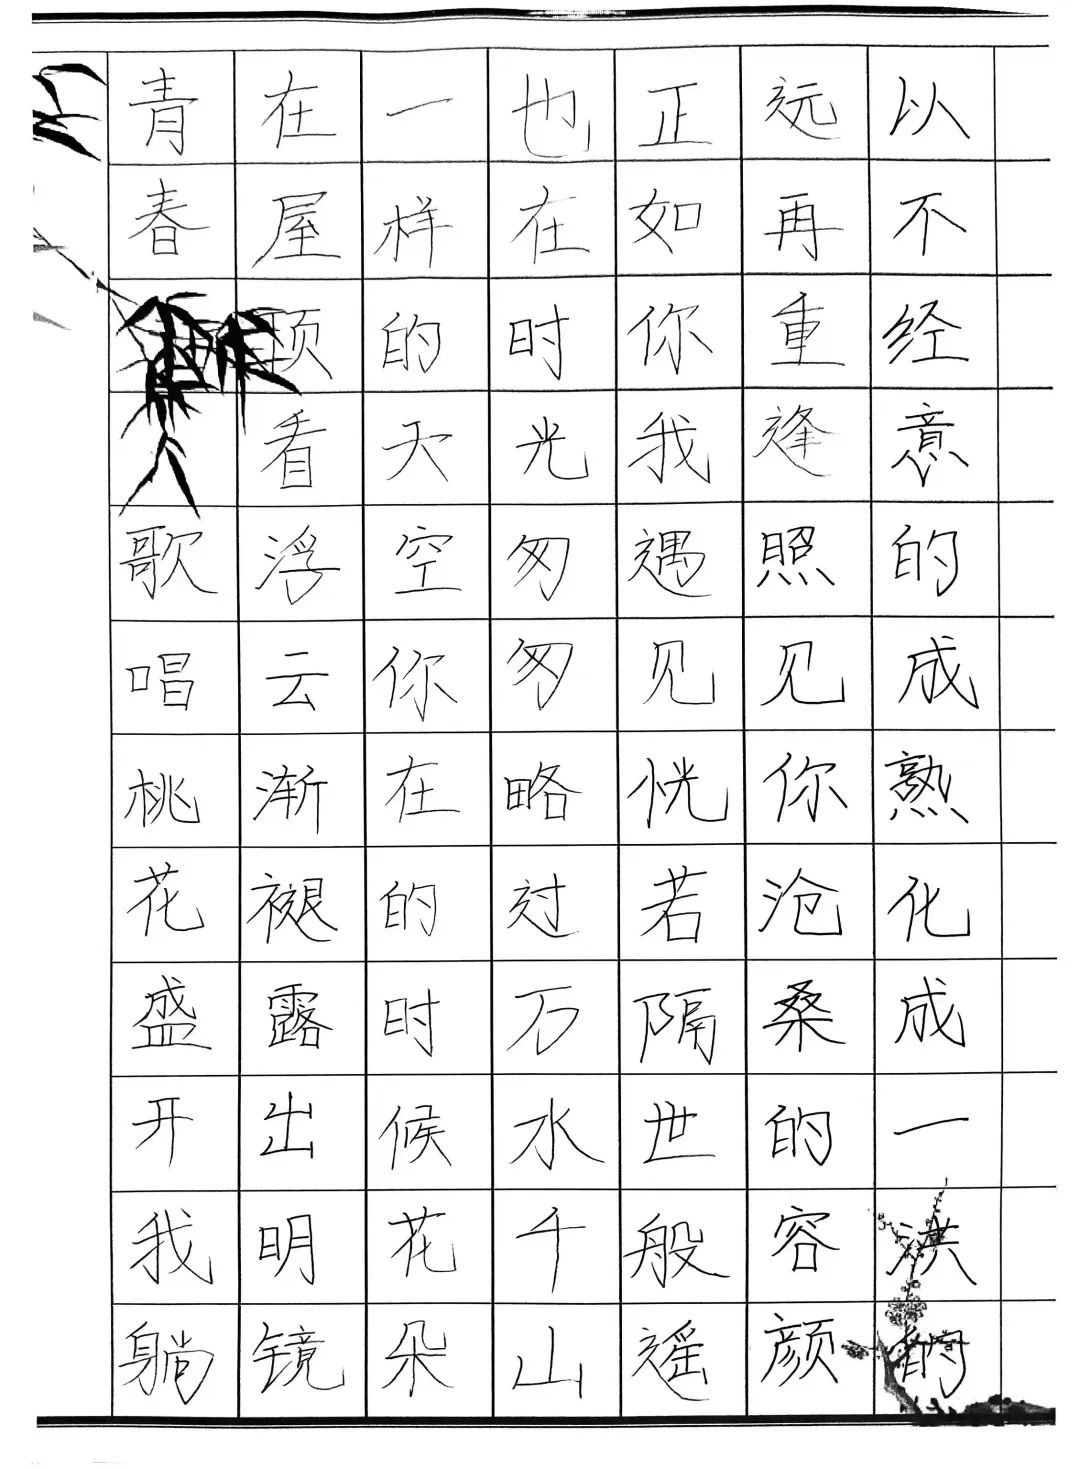 青春歌唱桃花盛开我躺
在屋顶看浮云渐褪露出明镜
一样的天空你在的时候花朵
也在时光匆匆略过万水千山
正如你我遇见恍若隔世般遥
远再重逢照见你沧桑的容颜
以不经意的成熟化成一洪